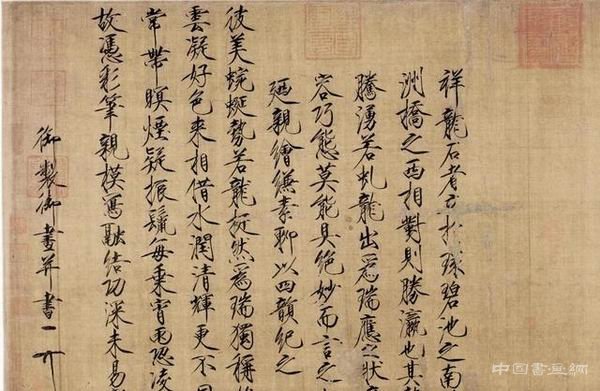 祥龍石者立於環碧池之南
洲橋之西相對則勝瀛也其
騰湧若虬龍出爲瑞應之狀
容巧態莫能具絕妙而言之
廼親繪縑素聊以四韻紀之
彼美蜿蜒勢若龍挺然爲瑞獨稱
雲凝好色來相借水潤清輝更不
常帶瞑煙疑振鬣每乘宵雨恐凌
故憑彩筆親模寫融結功深未易
御製御畫并書
中国書画網